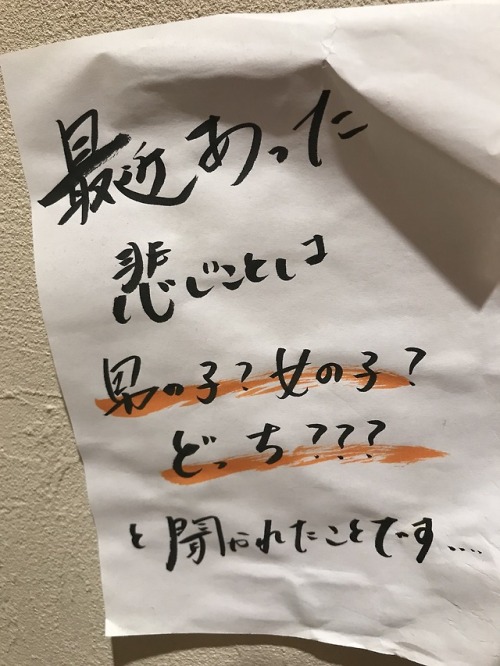 最近あった
悲しことは
男の子？女の子？
どっち？？？
と聞かれたことです....